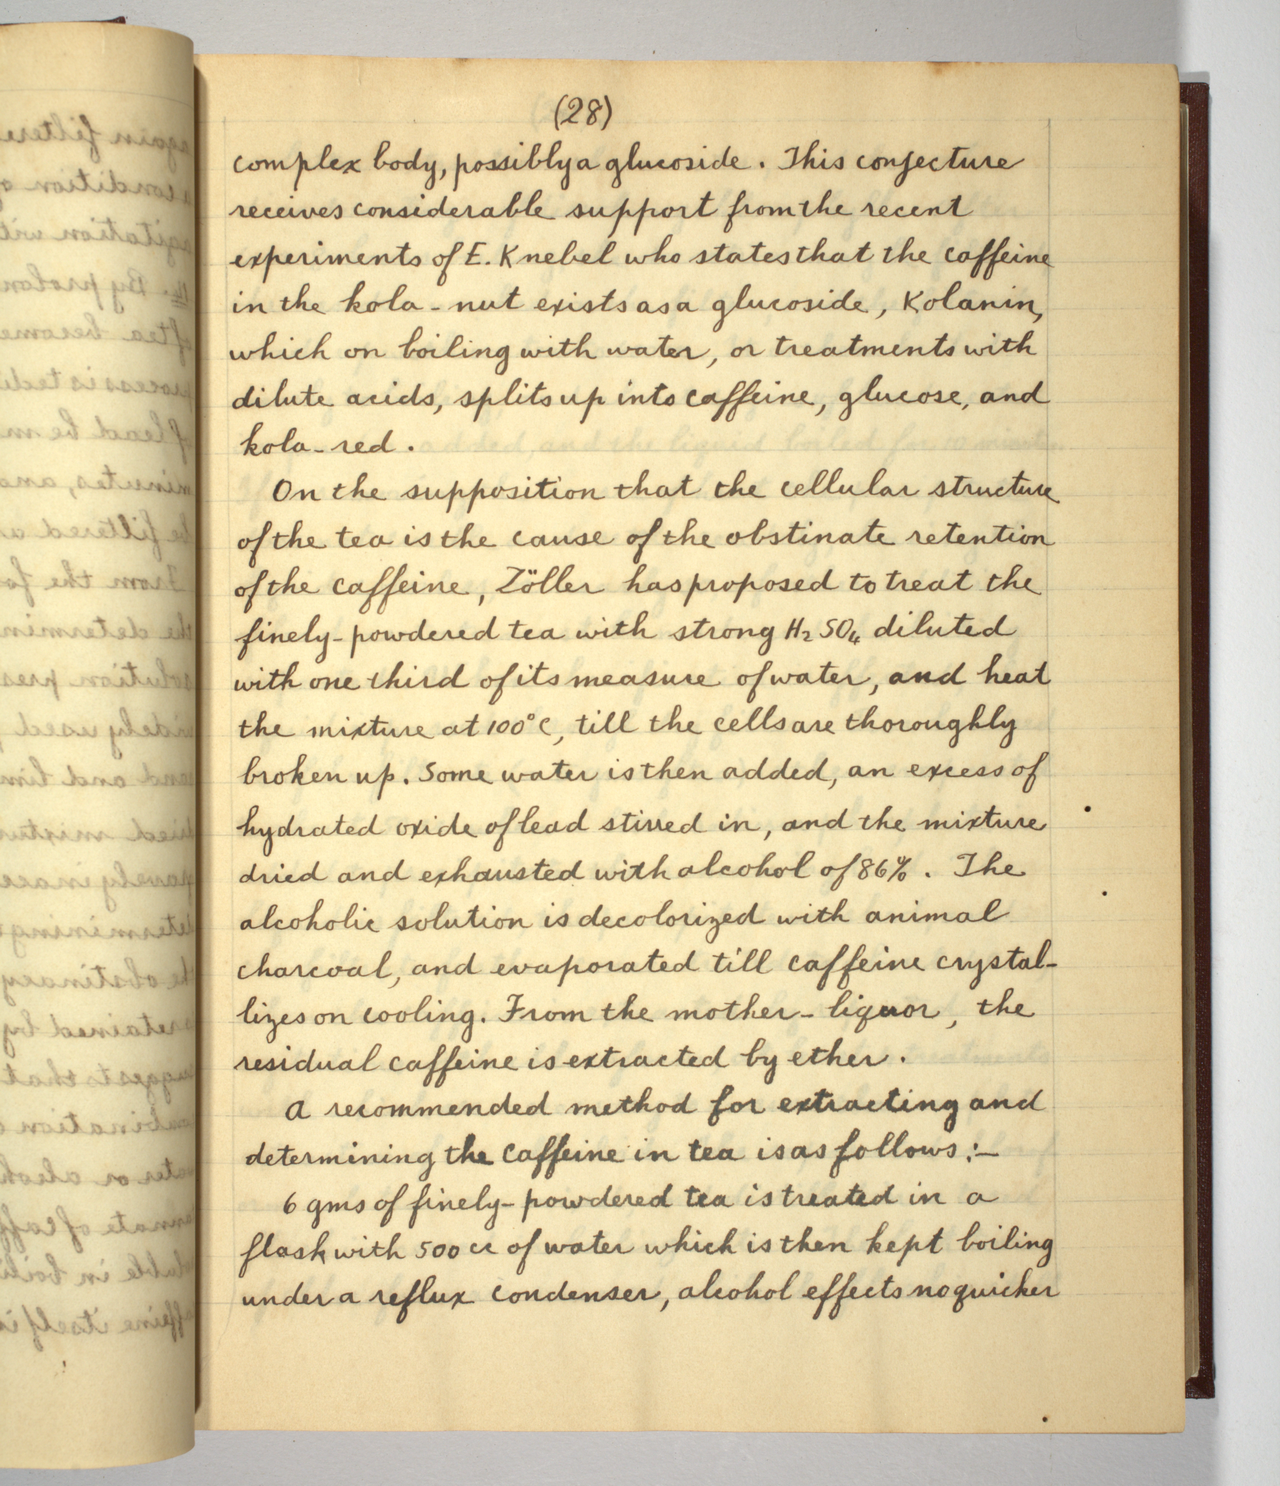 (28)
complex body, possibly a glucoside. This conjecture
receives considerable support from the recent
experiments of E. Knebel who states that the caffeine
in the kola-nut exists as a glucoside, Kolanin,
which on boiling with water, or treatments with
dilute acids, splits up into caffeine, glucose, and
kola-red.
On the supposition that the cellular structure
of the tea is the cause of the obstinate retention
of the caffeine, Zöller has proposed to treat the
finely-powdered tea with strong H₂SO₄ diluted
with one third of its measure of water, and heat
the mixture at 100°C, till the cells are thoroughly
broken up. Some water is then added, an excess of
hydrated oxide of lead stirred in, and the mixture
dried and exhausted with alcohol of 86%. The
alcoholic solution is decolorized with animal
charcoal, and evaporated till caffeine crystal-
lizes on cooling. From the mother-liquor, the
residual caffeine is extracted by ether.
A recommended method for extracting and
determining the caffeine in tea is as follows:—
6 gms of finely-powdered tea is treated in a
flask with 500 cc of water which is then kept boiling
under a reflux condenser, alcohol effects no quicker